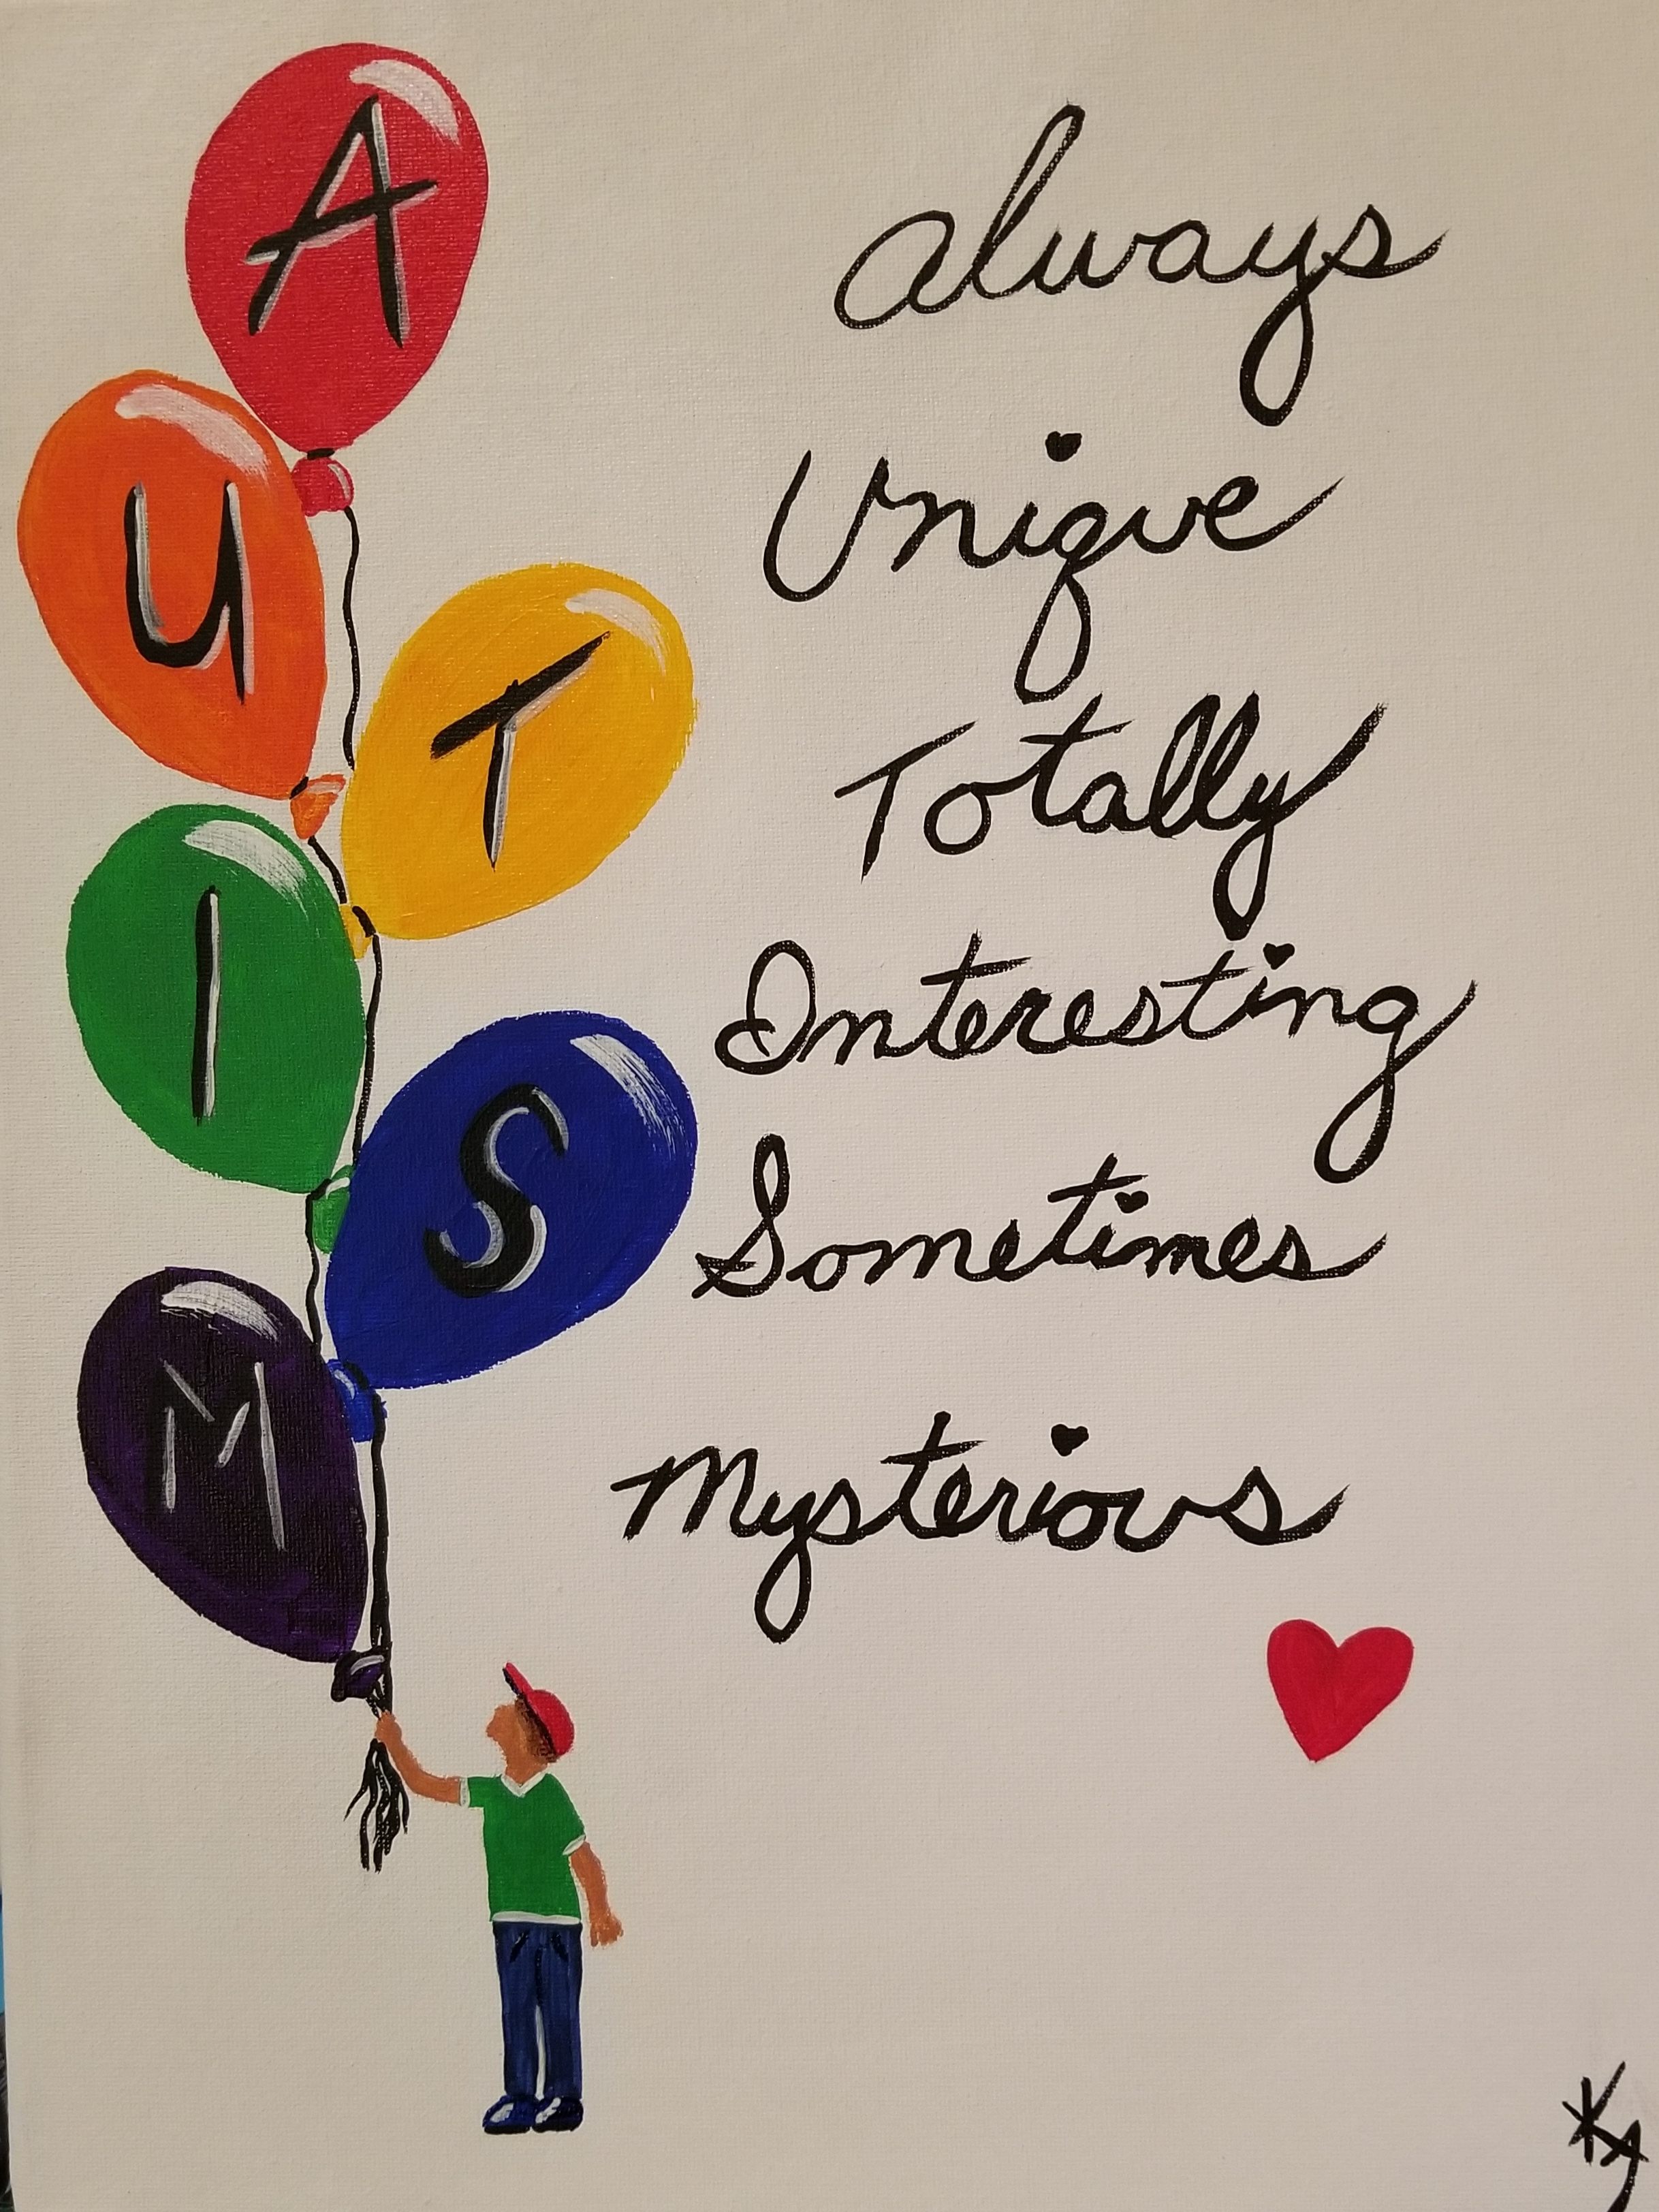 A
always
U
Unique
T
Totally
I
Interesting
S
Sometimes
M
Mysterious
KA